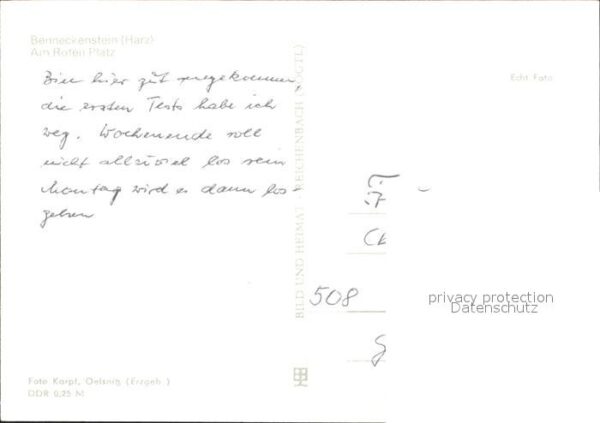 Benneckenstein (Harz)
Am Roten Platz
Bin hier gut angekommen,
die ersten Tests habe ich
weg. Wochenende soll
nicht allzuviel los sein
Montag wird es dann los
gehen
BILD UND HEIMAT · REICHENBACH (VOGTL)
Echt Foto
508
privacy protection
Datenschutz
Foto Karpf, Oelsnitz (Erzgeb.)
DDR 0,25 M